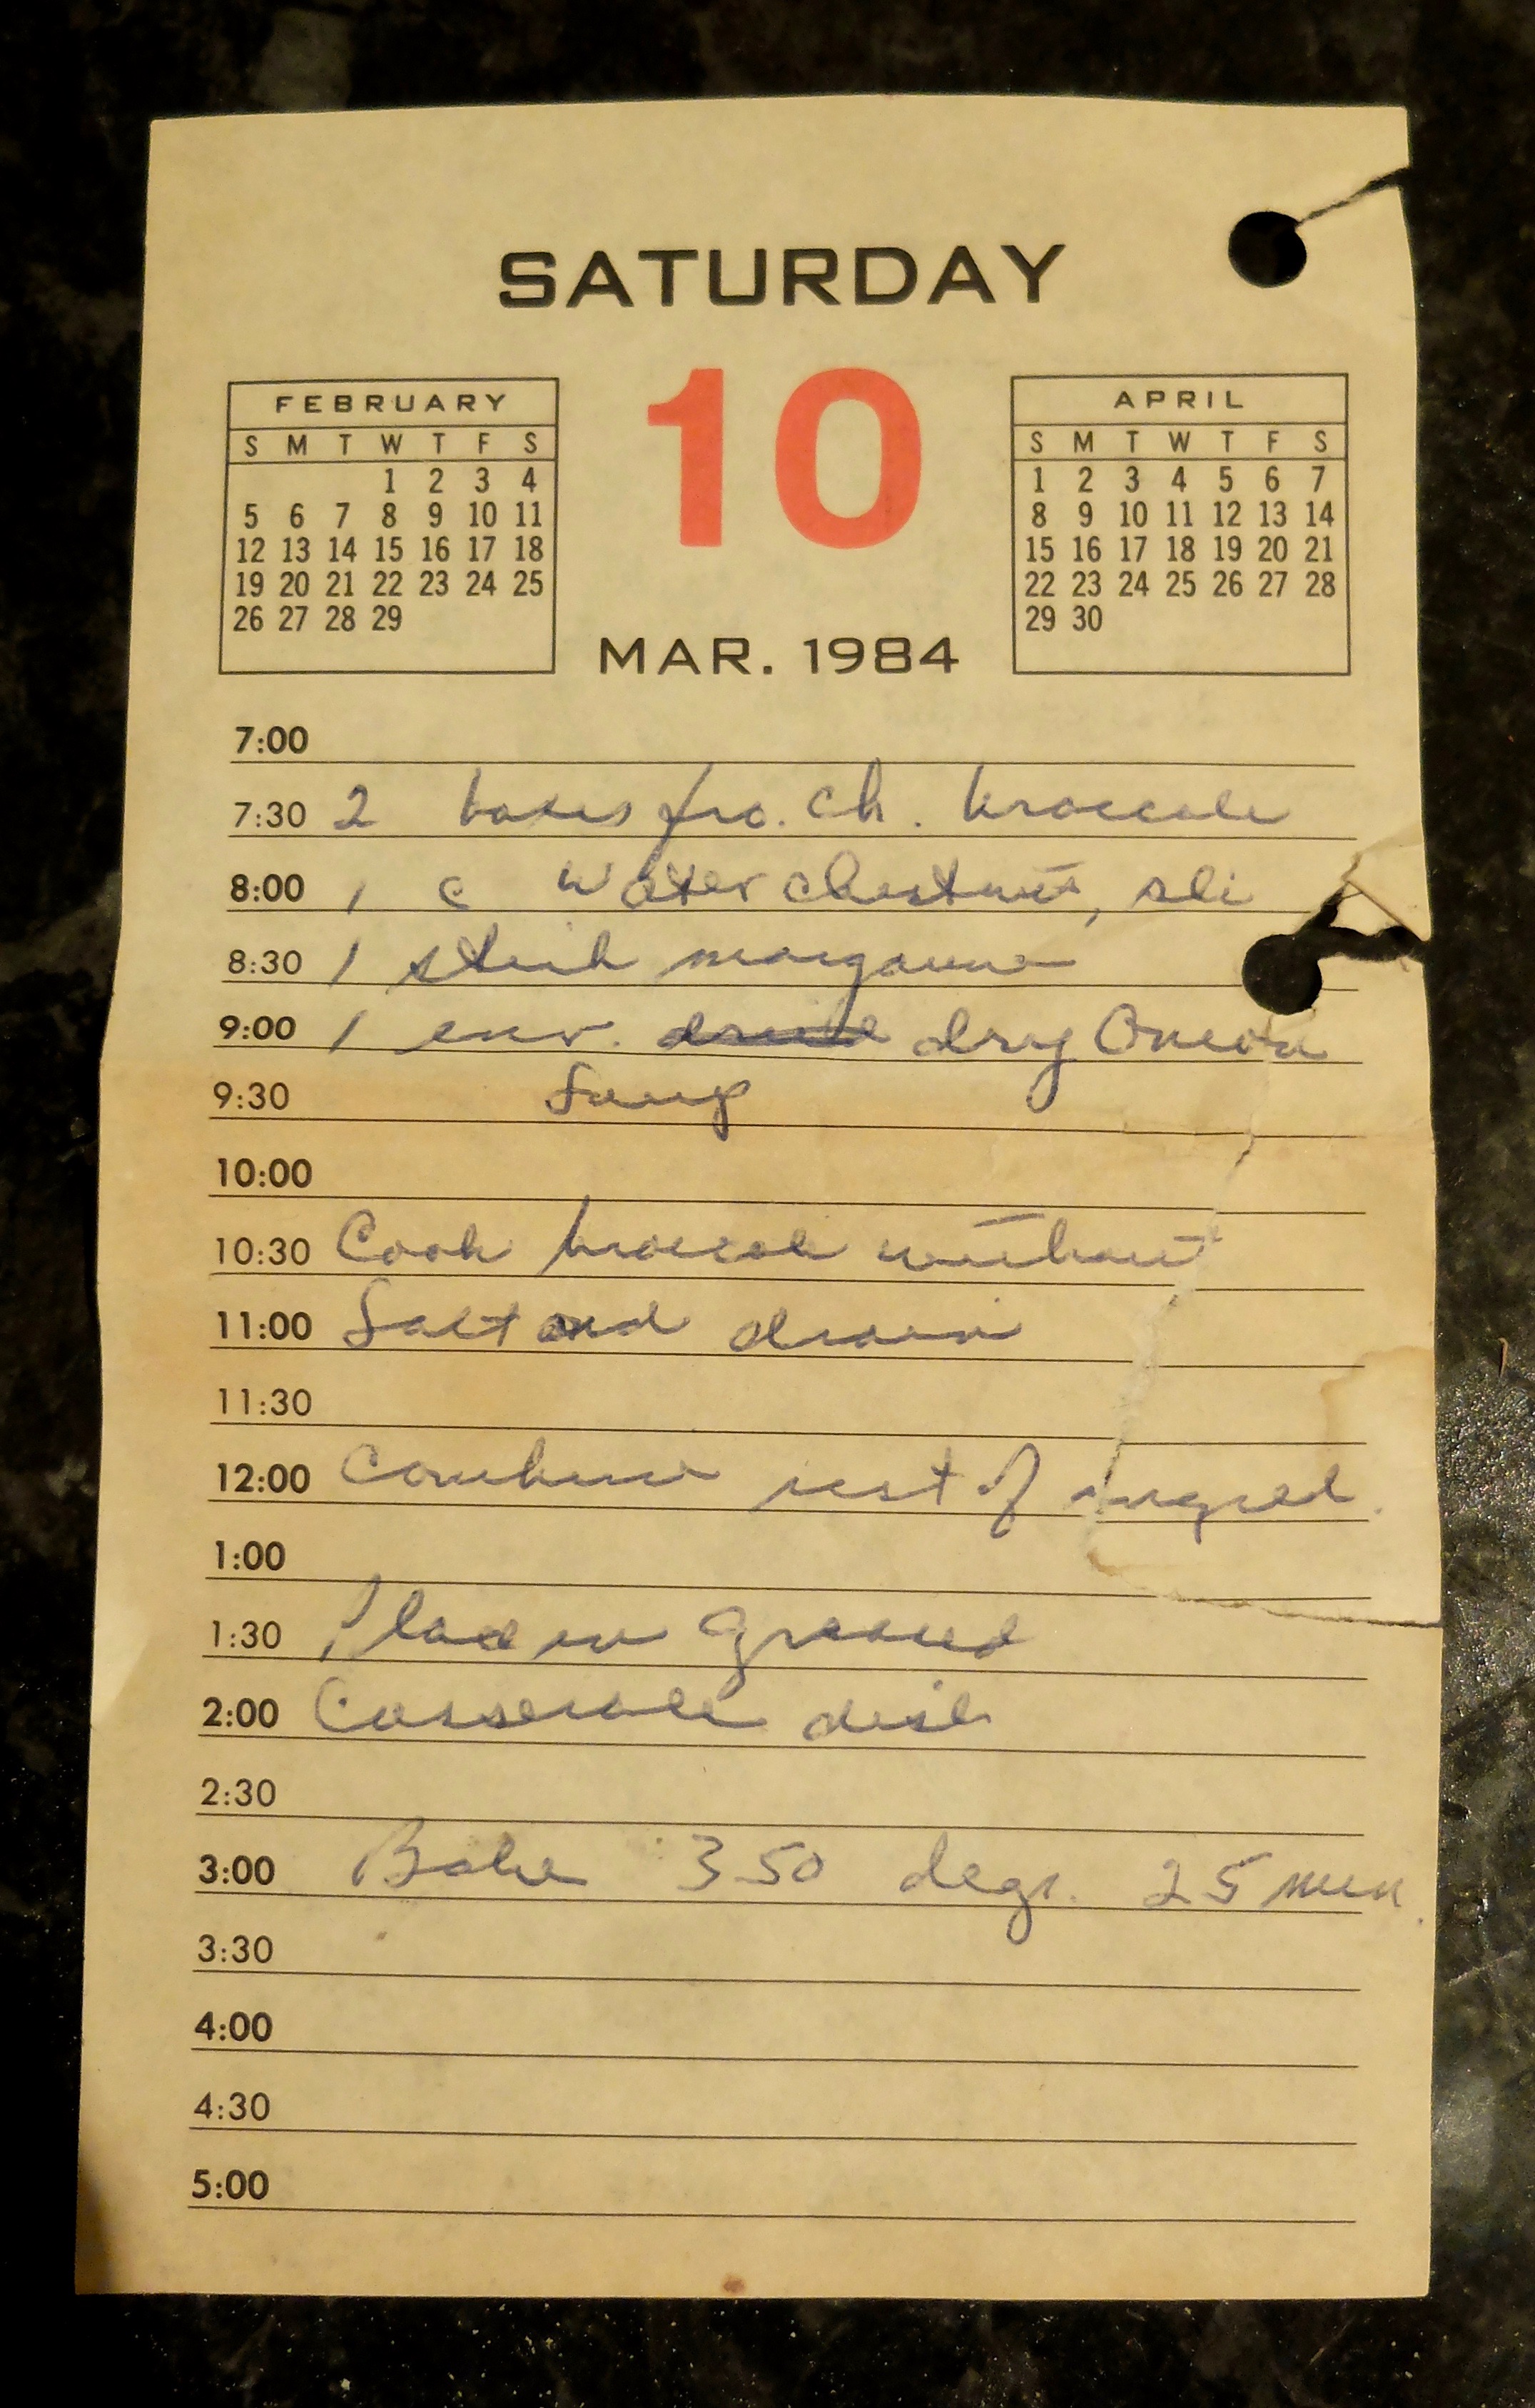 SATURDAY
10
MAR. 1984
FEBRUARY
S M T W T F S
1 2 3 4
5 6 7 8 9 10 11
12 13 14 15 16 17 18
19 20 21 22 23 24 25
26 27 28 29
APRIL
S M T W T F S
1 2 3 4 5 6 7
8 9 10 11 12 13 14
15 16 17 18 19 20 21
22 23 24 25 26 27 28
29 30
7:00
7:30 2 boxes fro. ch. broccole
8:00 1 c water chestnuts, sli
8:30 1 stick margarine
9:00 1 env. dry Onion
9:30 Soup
10:00
10:30 Cook broccoli without
11:00 Salt and drain
11:30
12:00 Combine rest of ingred.
1:00
1:30 Place in greased
2:00 Casserole dish
2:30
3:00 Bake 350 degr. 25 min.
3:30
4:00
4:30
5:00